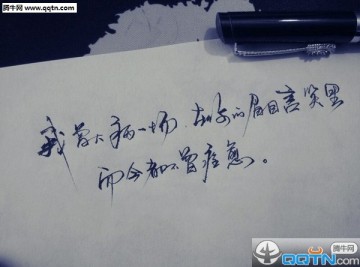 腾牛网
www.qqtn.com
我曾大病一场,在你的眉目言笑里
而今都不曾痊愈。
腾牛网
QQTN.COM